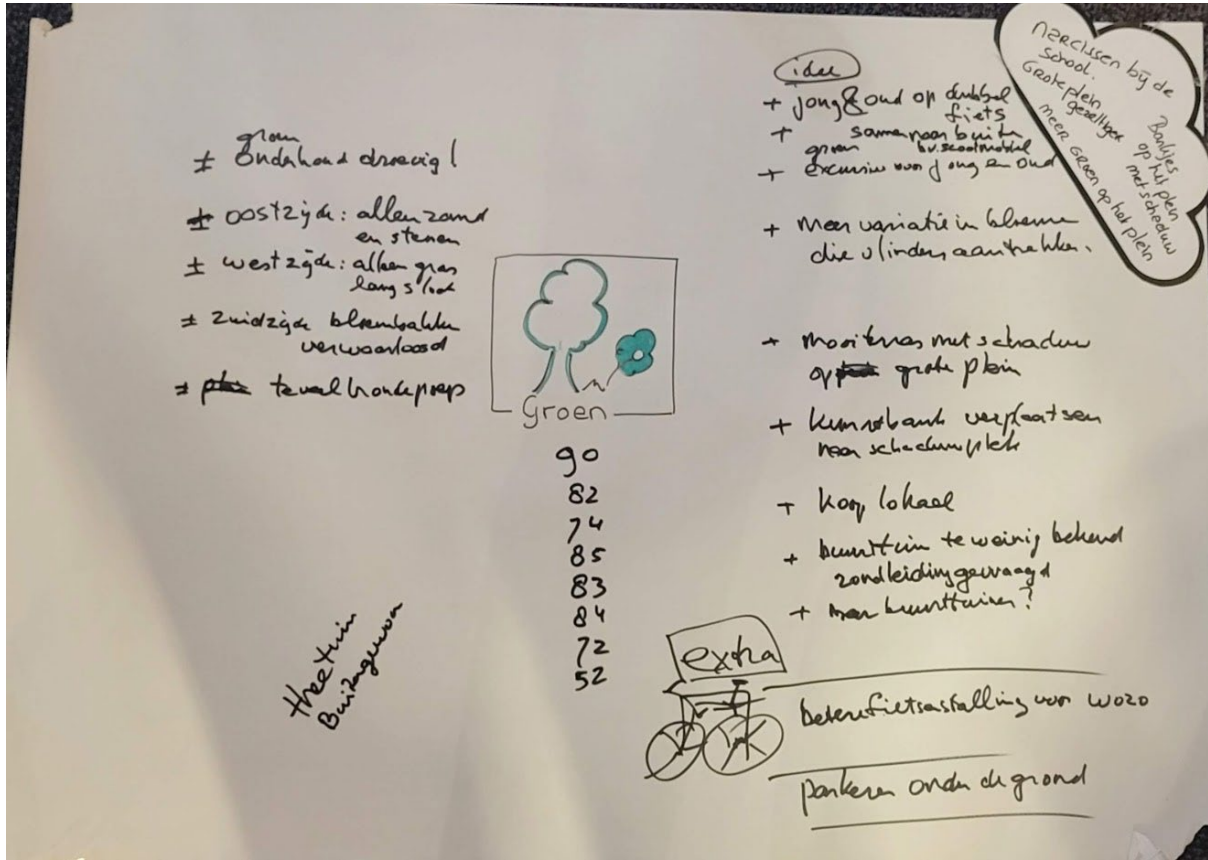 groen
± onderhoud droevig!
± oostzijde: alleen zand
en stenen
± westzijde: alleen gras
langs sloot
± zuidzijde bloembakken
verwaarloosd
± te veel hondepoep
Groen
90
82
74
85
83
84
72
52
theetuin
Buitengewoon
idee
+ jong & oud op dubbel
fiets
+ samen naar buiten
groen bv. scootmobiel
+ excursie voor jong en oud
+ Meer variatie in bloemen
die vlinders aantrekken.
+ mooi terras met schaduw
op grote plein
+ kunstbank verplaatsen
naar schaduwplek
+ koop lokaal
+ buurttuin te weinig bekend
rondleiding gevraagd
+ meer buurttuinen?
extra
betere fietsenstalling voor WOZO
parkeren onder de grond
Narcissen bij de
school.
Grote plein
gezelliger
meer Groen op het plein
Bankjes
op het plein
met schaduw